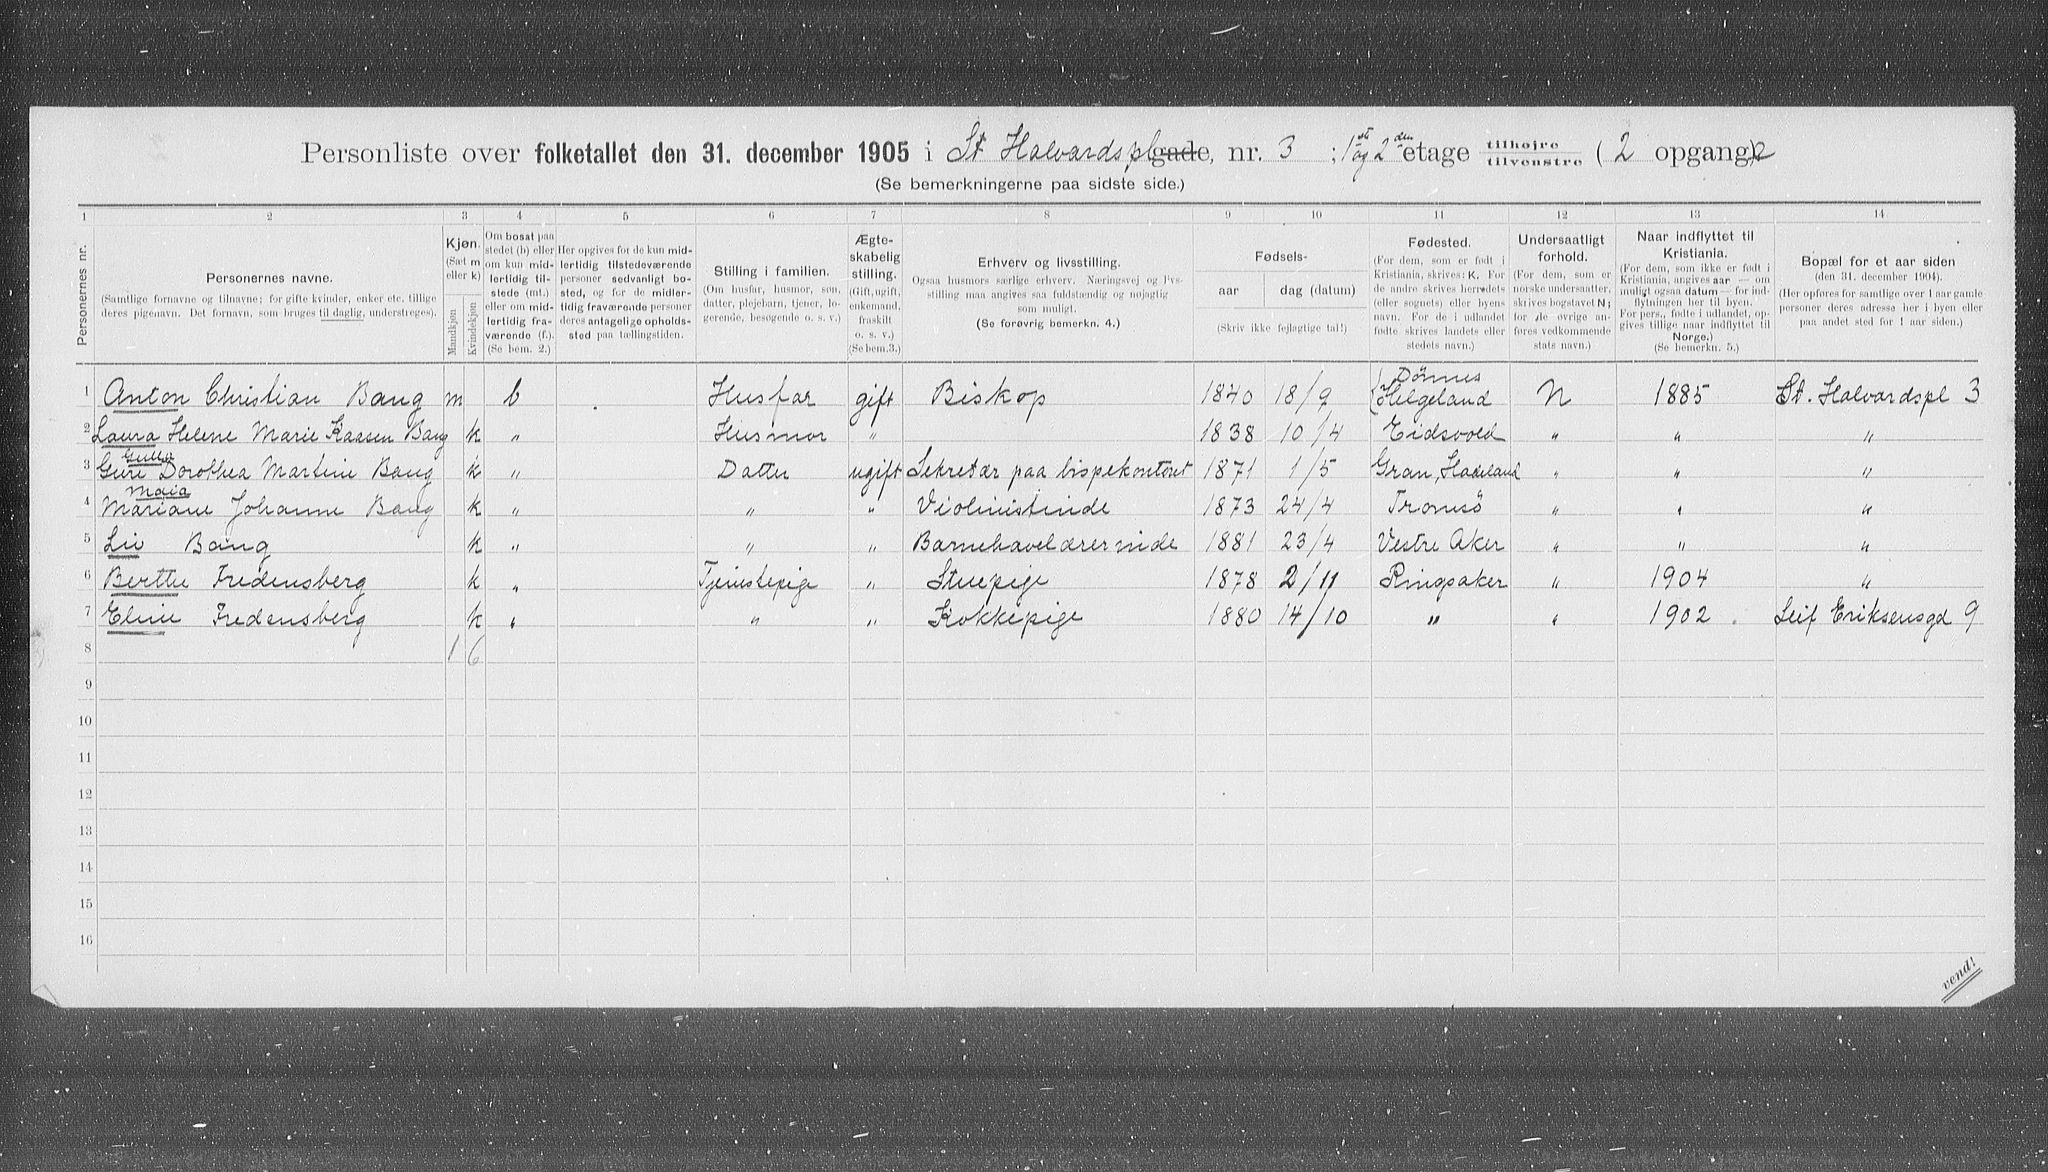 Personliste over folketallet den 31. december 1905 i St Halvardspl gade, nr. 3 ; 1st og 2den etage tilhøjre tilvenstre ( 2 opgang)e
(Se bemerkningerne paa sidste side.)
1 2 3 4 5 6 7 8 9 10 11 12 13 14
Personernes nr.
Personernes navne.
(Samtlige fornavne og tilnavne; for gifte kvinder, enker etc. tillige deres pigenavn. Det fornavn, som bruges til daglig, understreges).
Kjøn.
(Sæt m eller k)
Mandkjøn
Kvindekjøn
Om bosat paa stedet (b) eller om kun midlertidig tilstede (mt.) eller om midlertidig fraværende (f.). (Se bem. 2.)
Her opgives for de kun midlertidig tilstedeværende personer sedvanligt bosted, og for de midlertidig fraværende personer deres antagelige opholdssted paa tællingstiden.
Stilling i familien.
(Om husfar, husmor, søn, datter, plejebarn, tjener, logerende, besøgende o. s. v.)
Ægteskabelig stilling.
(Gift, ugift, enkemand, fraskilt o. s. v.)
(Se bem.3.)
Erhverv og livsstilling.
Ogsaa husmors særlige erhverv. Næringsvej og livsstilling maa angives saa fuldstændig og nøjagtig som muligt.
(Se forøvrig bemerkn. 4.)
Fødsels-
aar
dag (datum)
(Skriv ikke fejlagtige tal!)
Fødested.
(For dem, som er født i Kristiania, skrives: K. For de andre skrives herredets (eller sognets) eller byens navn. For de i udlandet fødte skrives landets eller stedets navn.)
Undersaatligt forhold.
(For dem, som er norske undersaatter, skrives bogstavet N; for de øvrige anføres vedkommende stats navn.)
Naar indflyttet til Kristiania.
(For dem, som ikke er født i Kristiania, angives aar — om muligt ogsaa datum — for indflytningen her til byen. For pers., fødte i udlandet, opgives tillige naar indflyttet til Norge.)
(Se bemerkn. 5.)
Bopæl for et aar siden
(den 31. december 1904).
(Her opføres for samtlige over 1 aar gamle personer deres adresse her i byen eller paa andet sted for 1 aar siden.)
1 Anton Christian Bang m b Husfar gift Biskop 1840 18/9 {Dønnes Helgeland N 1885 St. Halvardspl 3
2 Laura Helene Marie Kaasen Bang k " Husmor " 1838 10/4 Eidsvold " " "
Gulla
3 Guri Dorothea Martine Bang k " Datter ugift Sekretær paa bispekontoret 1871 1/5 Gran, Hadeland " " "
Maia
4 Mariane Johanne Bang k " " " Violinistinde 1873 24/4 Tromsö " " "
5 Liv Bang k " " " Barnehavelærerinde 1881 23/4 Vestre Aker " " "
6 Berthe Fredensberg k " Tjenstepige " Stuepige 1878 2/11 Ringsaker " 1904 "
7 Eline Fredensberg k " " " Kokkepige 1880 14/10 " " 1902 Leif Eriksensgd 9
8 1 6
9
10
11
12
13
14
15
16
vend!